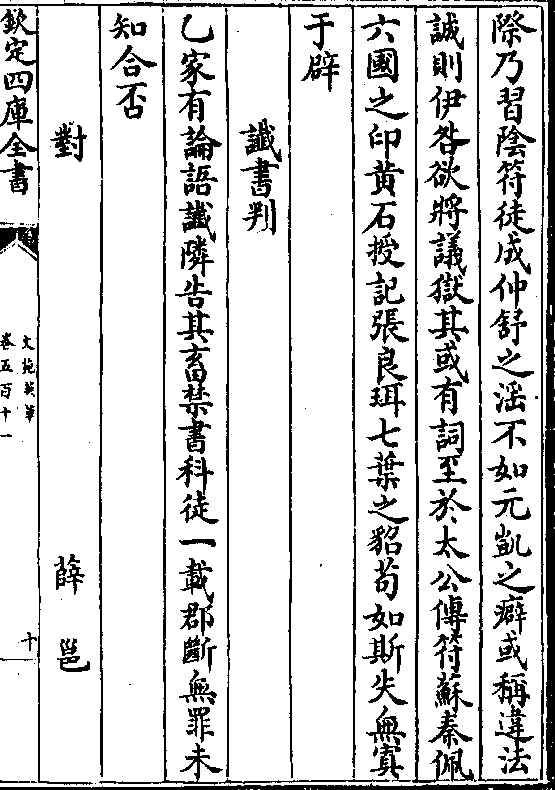 際乃習陰符徒成仲舒之滛不如元凱之癖或稱違法
誠則伊咎欲將議獄其或有詞至於太公傳符蘇秦佩
六國之印黄石授記張良珥七葉之貂苟如斯失無寘
于辟
讖書判
乙家有論語讖隣告其畜禁書科徒一載郡斷無罪未
知合否
對 薛邕
欽定四庫全書
文苑英華
卷五百十一
十